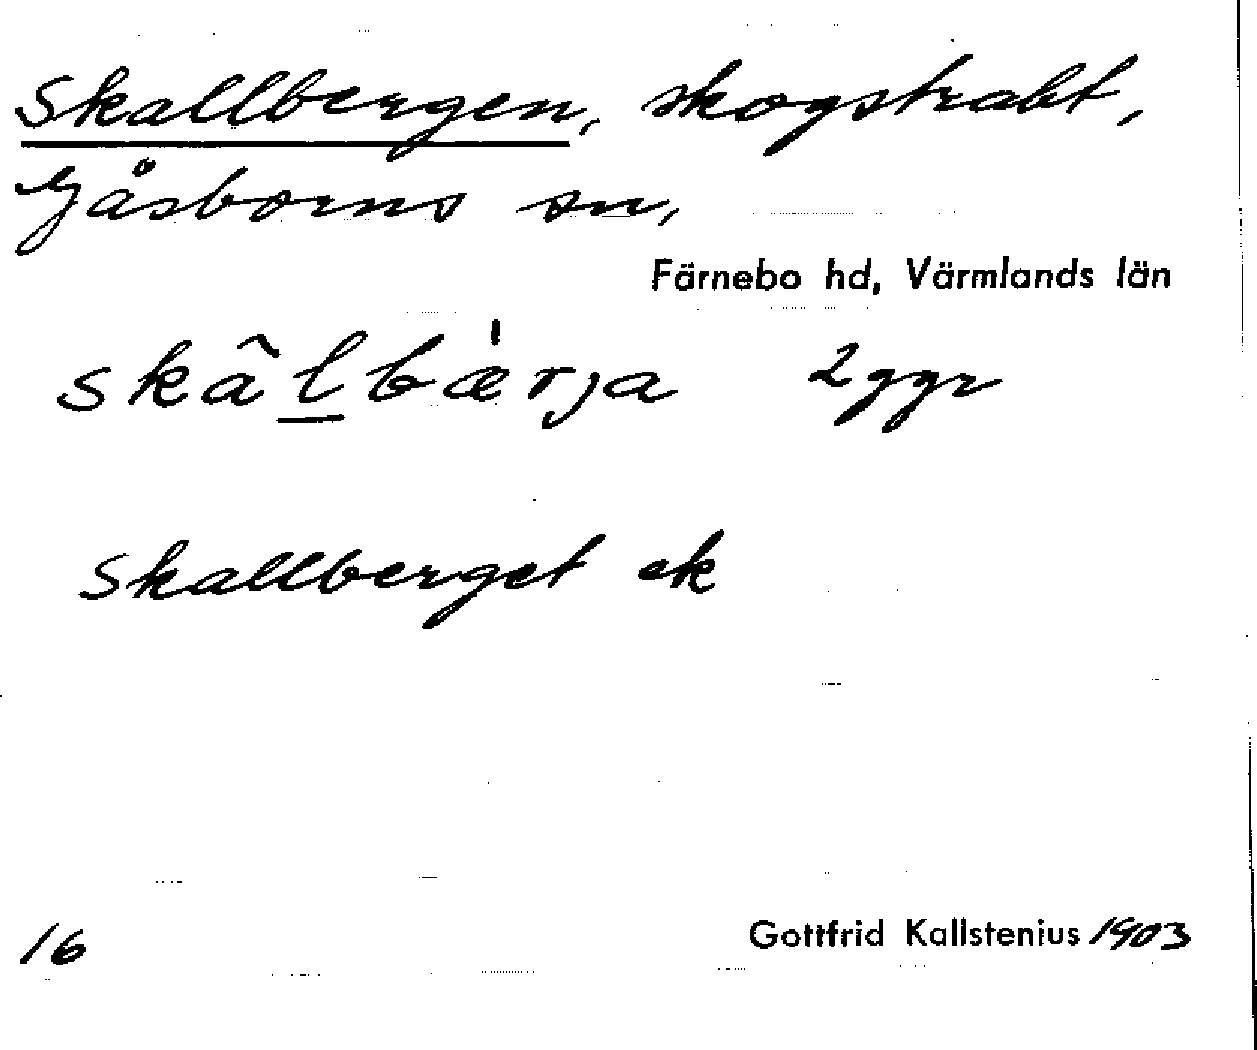 Skallbergen, skogstrakt,
Gåsborns sn,
Färnebo hd, Värmlands län
skâlbæ̀rja 2 ggr
Skallberget ek
16 Gottfrid Kallstenius 1903